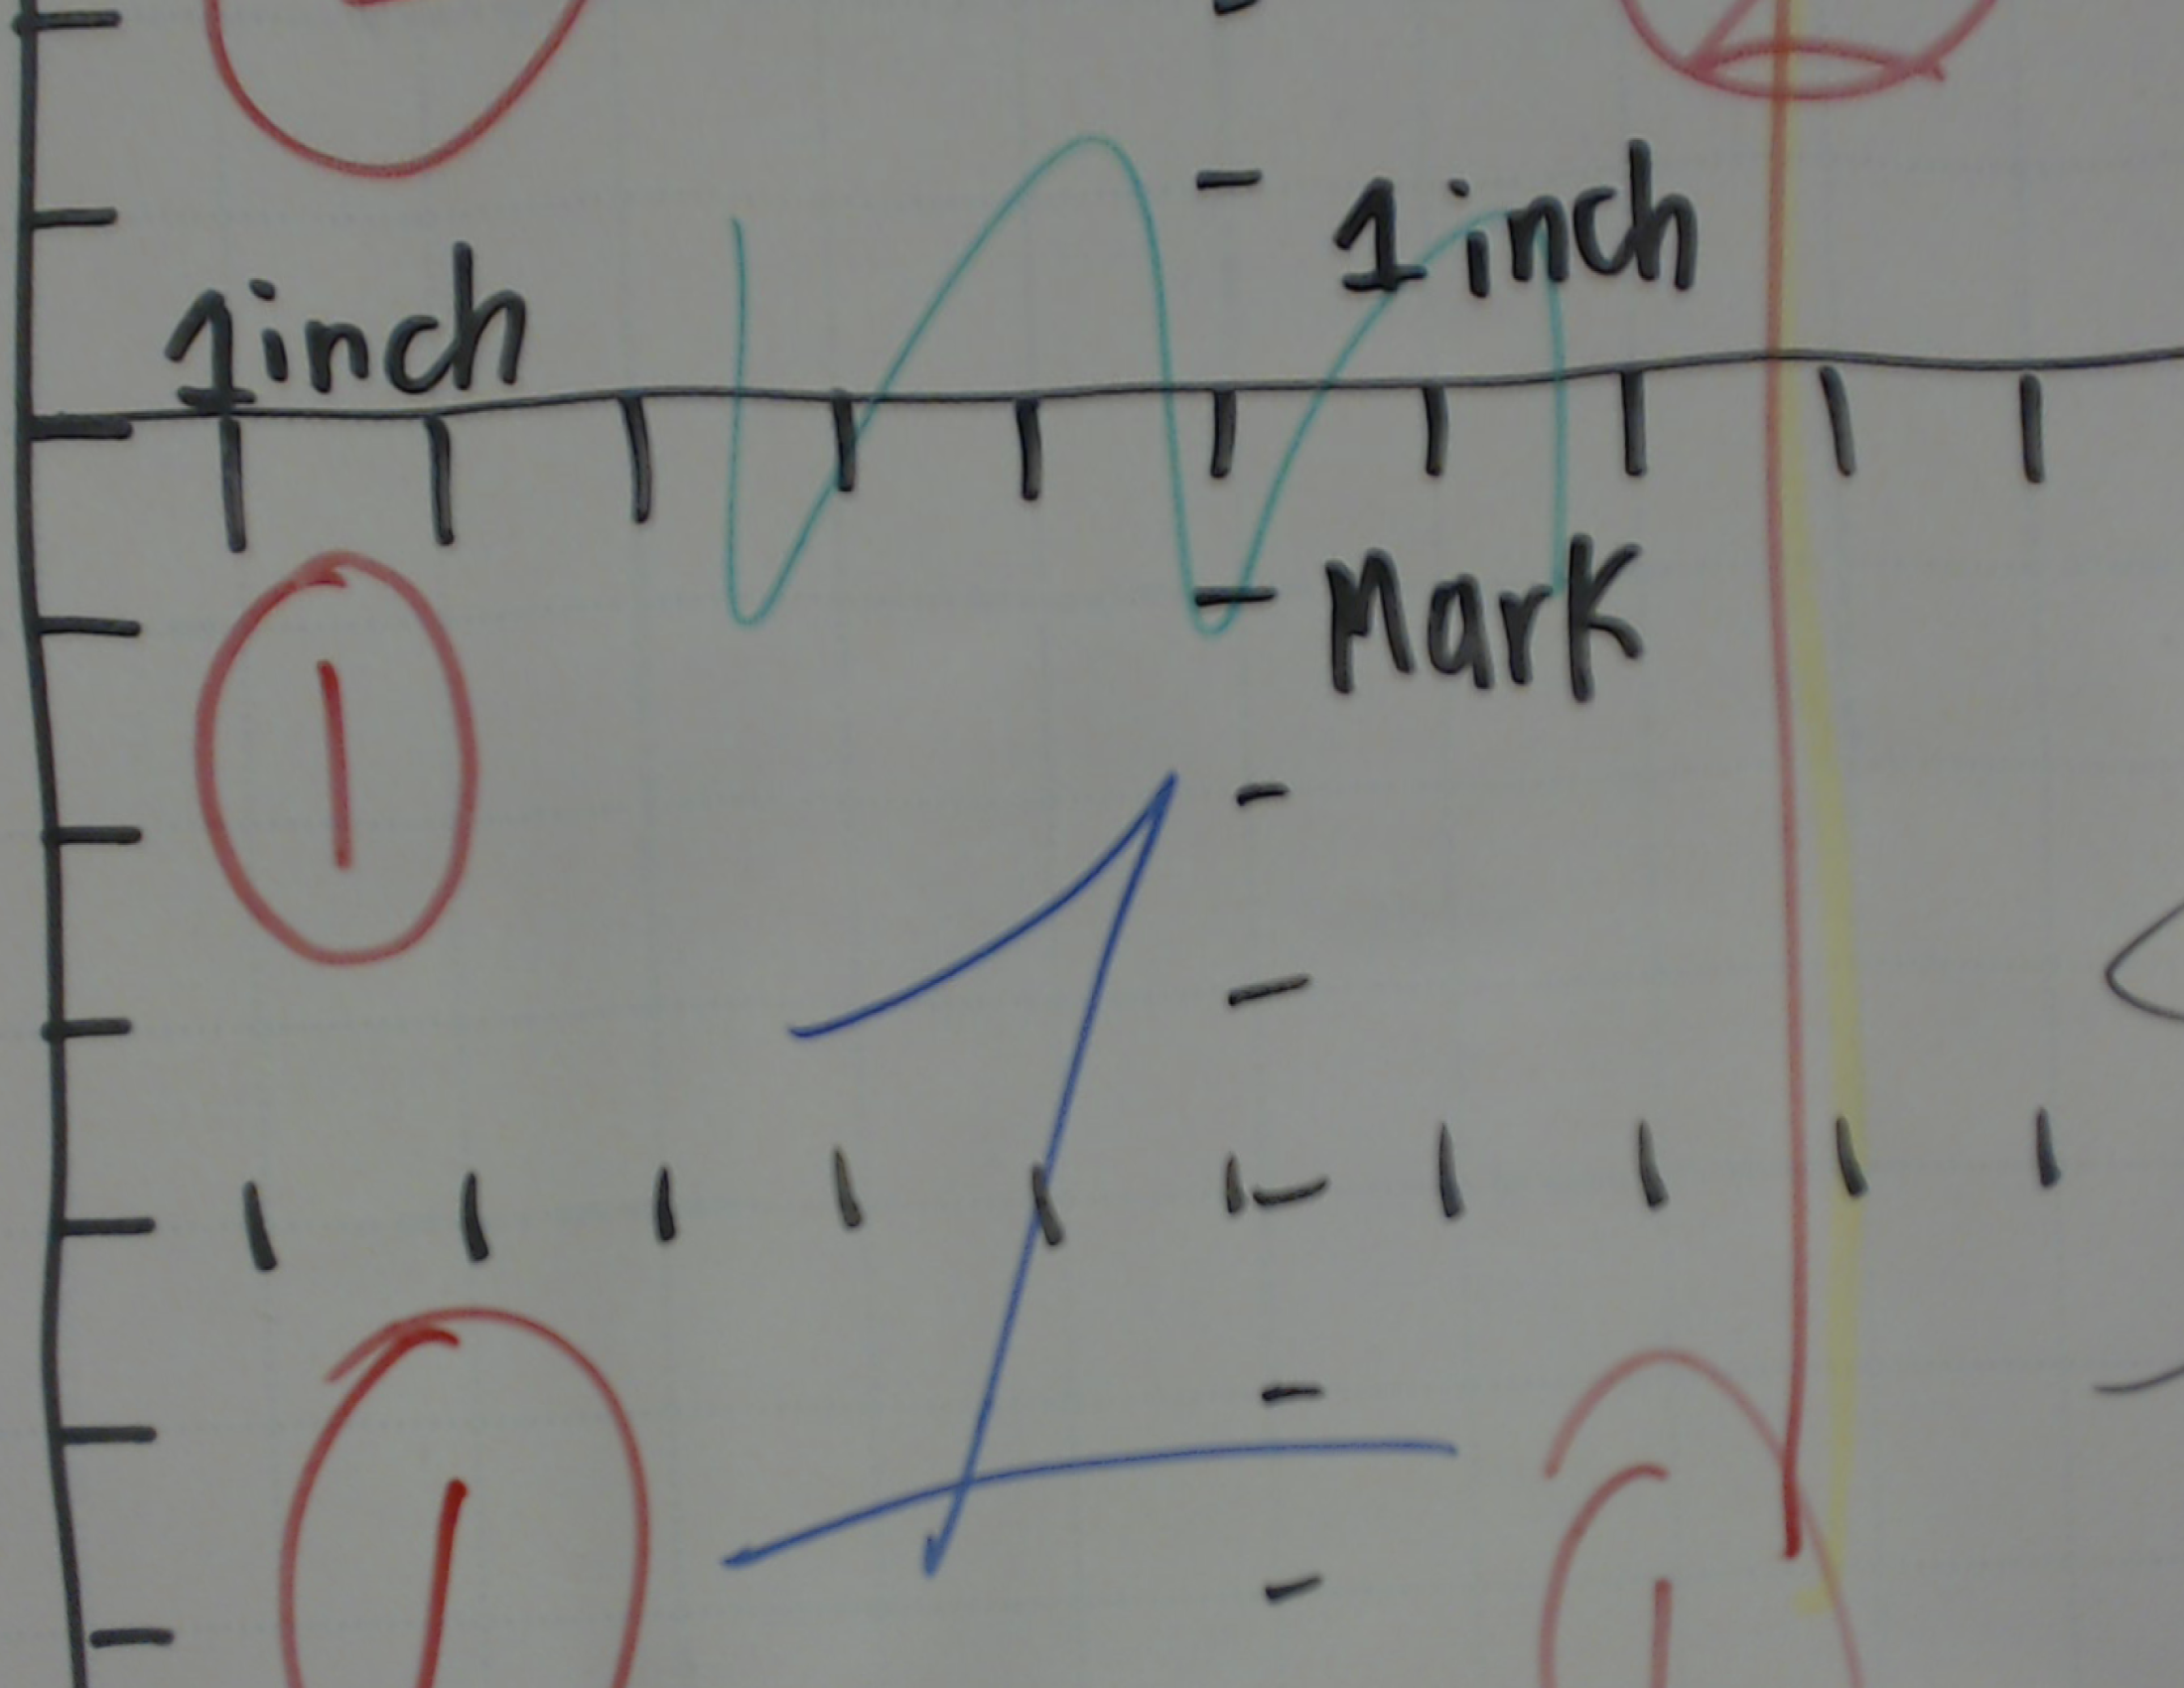 1 inch
1 inch
Mark
1
1
1
1